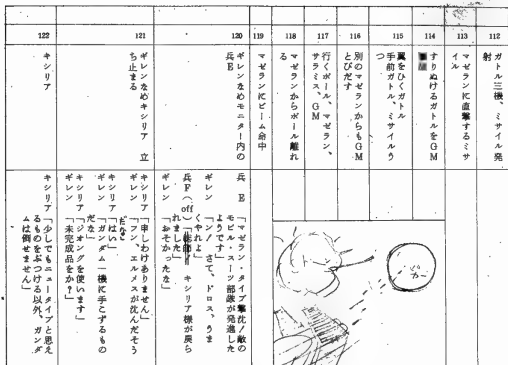 112
ガトル三機、ミサイル発
射
113
マゼランに直撃するミサ
イル
114
すりぬけるガトルをGM
115
翼をひくガトル
手前ガトル、ミサイルう
つ
116
別のマゼランからもGM
とびだす
117
行くボール、マゼラン、
サラミス、GM
118
マゼランからボール離れ
る
119
マゼランにビーム命中
120
ギレンなめモニター内の
兵E
兵E
「マゼラン・タイプ撃沈!敵の
モビル・スーツ部隊が発進した
ようです」
ギレン
「ン!さて、ドロス、うま
くやれよ」
兵F(off)
「キシリア様が戻ら
れました」
ギレン
「おそかったな」
121
ギレンなめキシリア 立
ち止まる
キシリア
「申しわけありません」
ギレン
「フン、エルメスが沈んだそう
だな」
キシリア
「はい」
ギレン
「ガンダム一機に手こずるもの
だな」
キシリア
「ジオングを使います」
ギレン
「未完成品をか?」
122
キシリア
キシリア
「少しでもニュータイプと思え
るものをぶつける以外、ガンダ
ムは倒せません」
ピカー